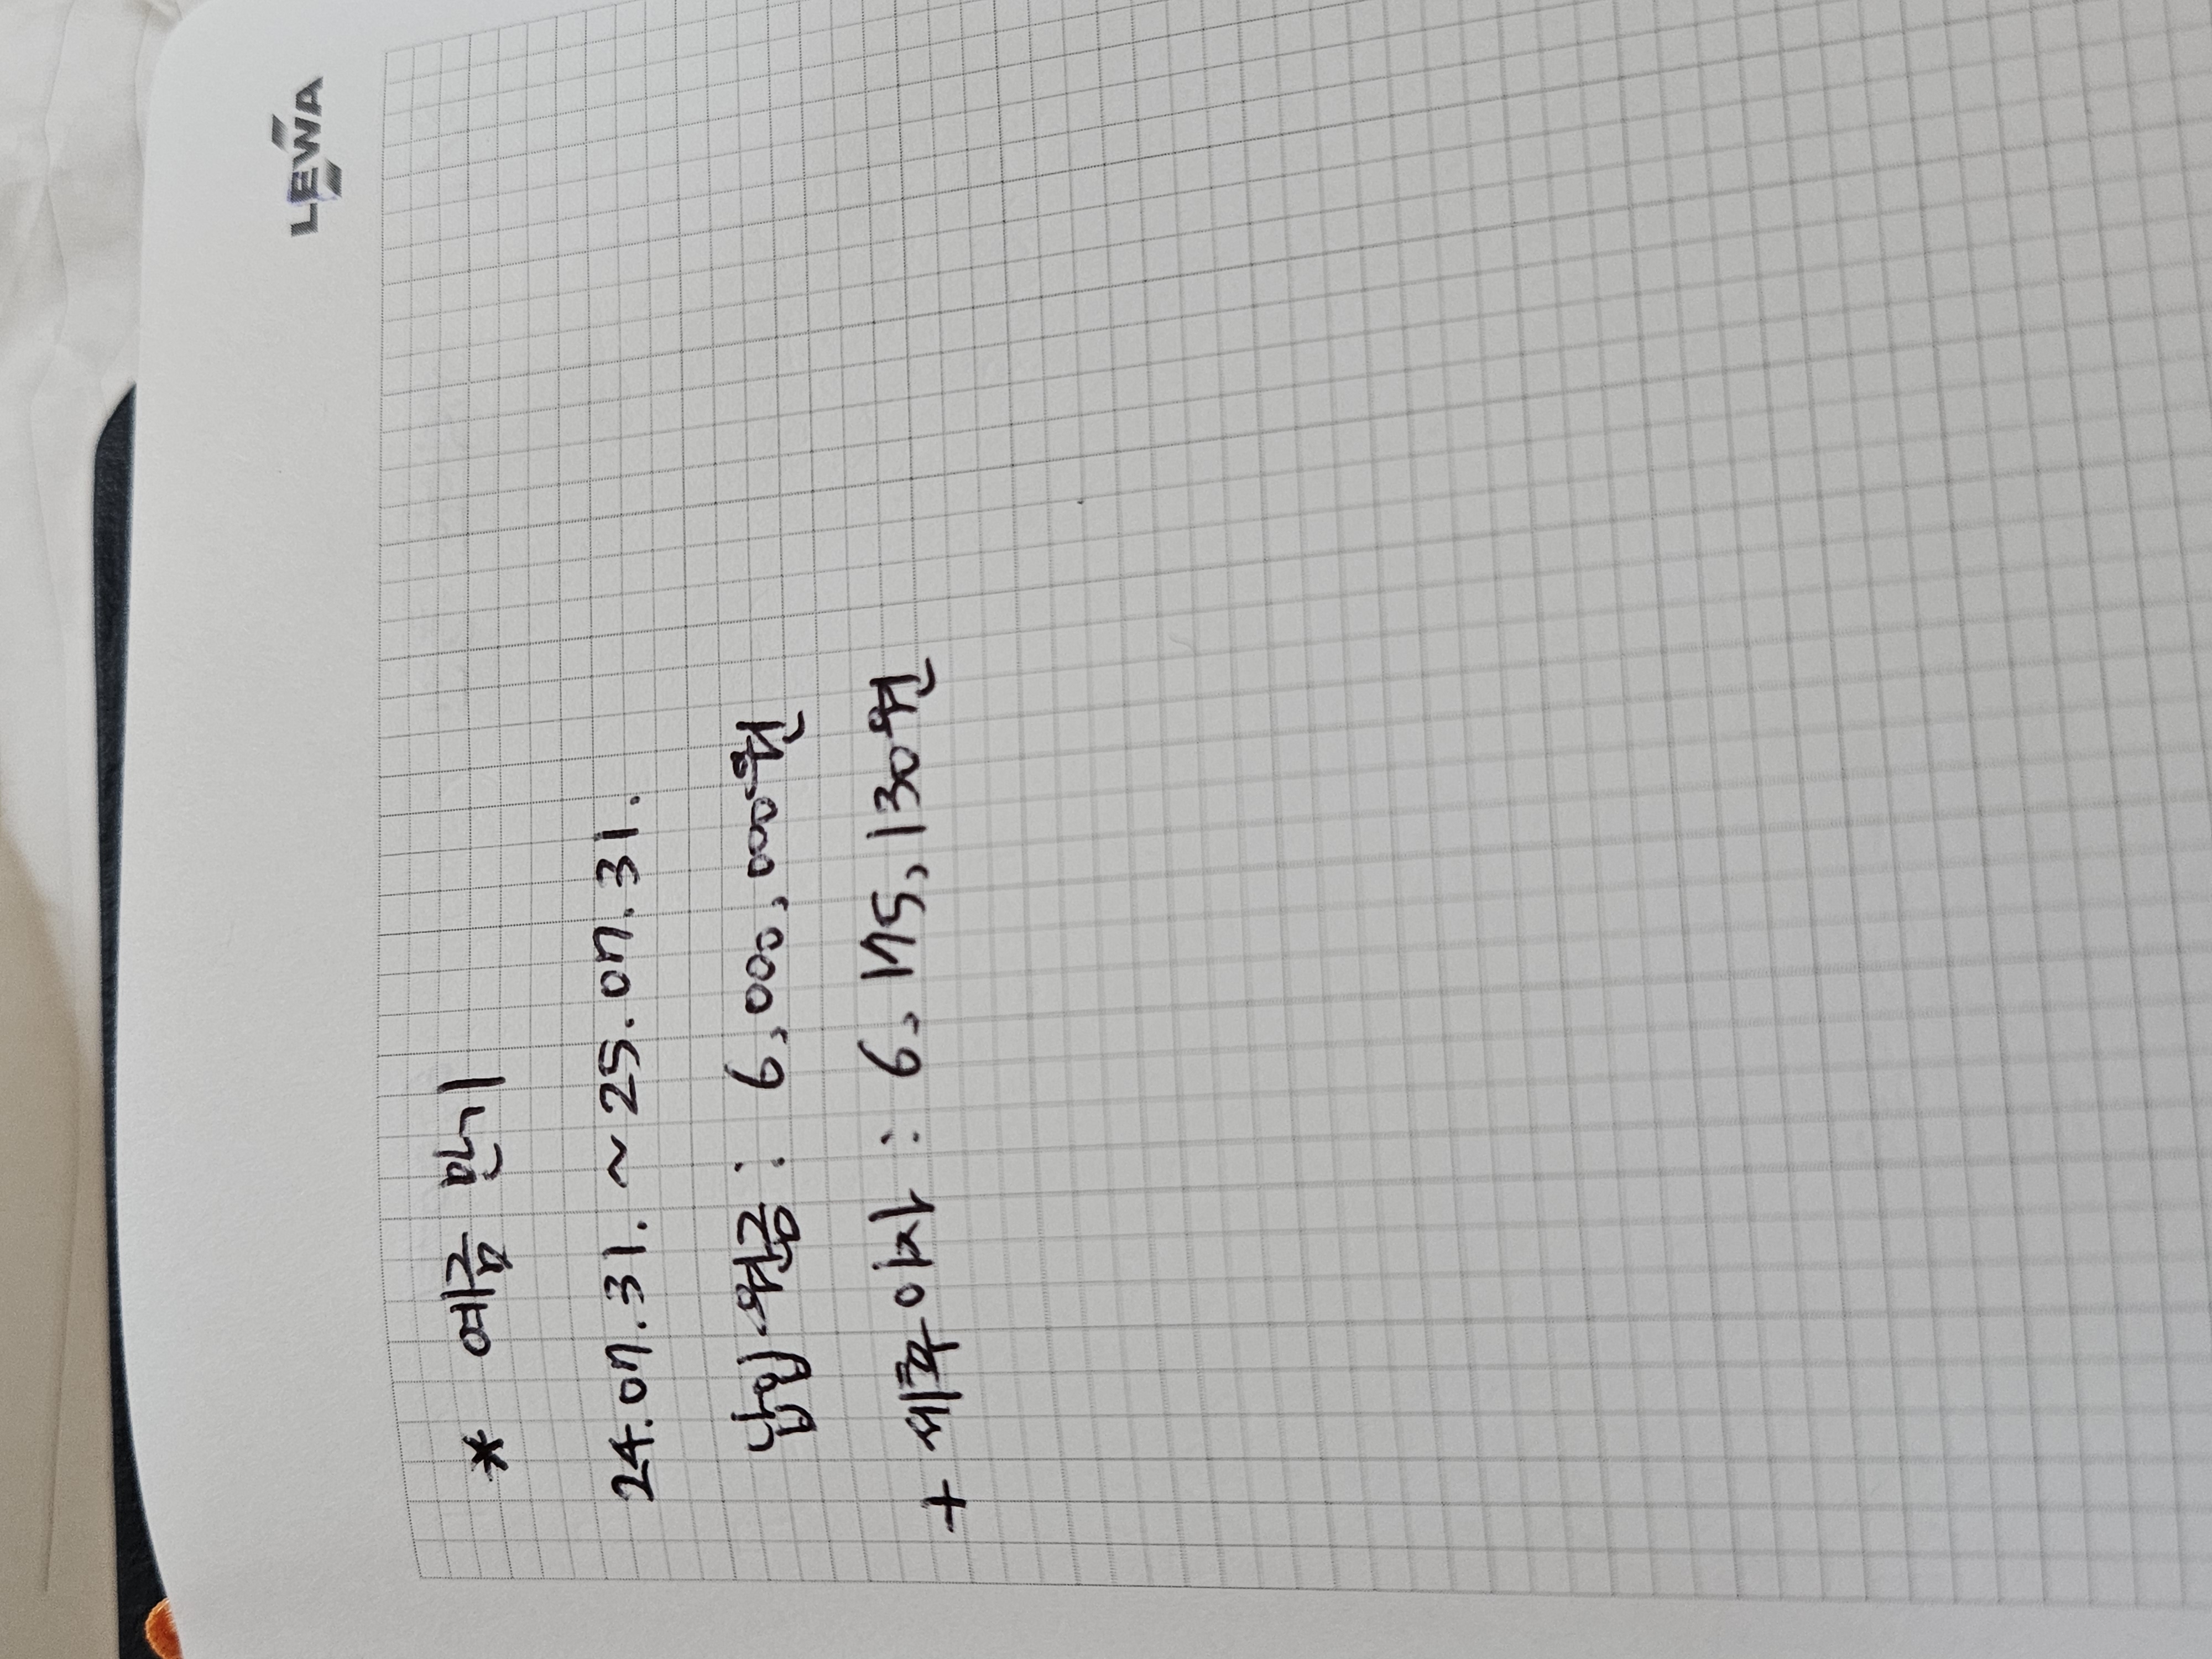 LEWA
* 예금 만기
24.07.31. ~ 25.07.31.
납입 원금 : 6,000,000원
+ 세후이자 : 6,175,130원